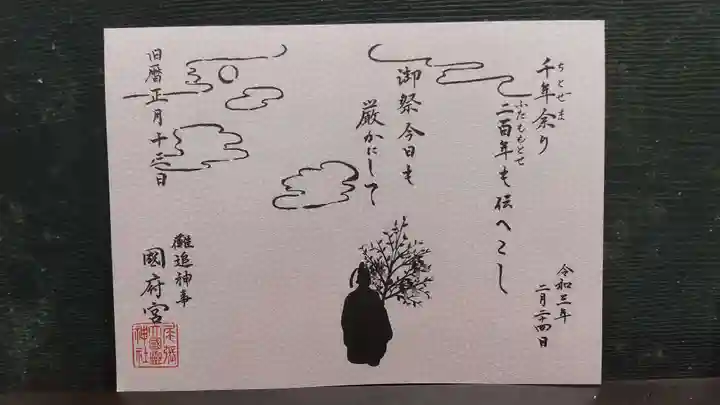 千年余り
ちとせま
二百年も伝へこし
ふたももとせ
御祭今日も
厳かにして
令和三年
二月二十四日
旧暦正月十三日
儺追神事
國府宮
尾張
大國霊
神社